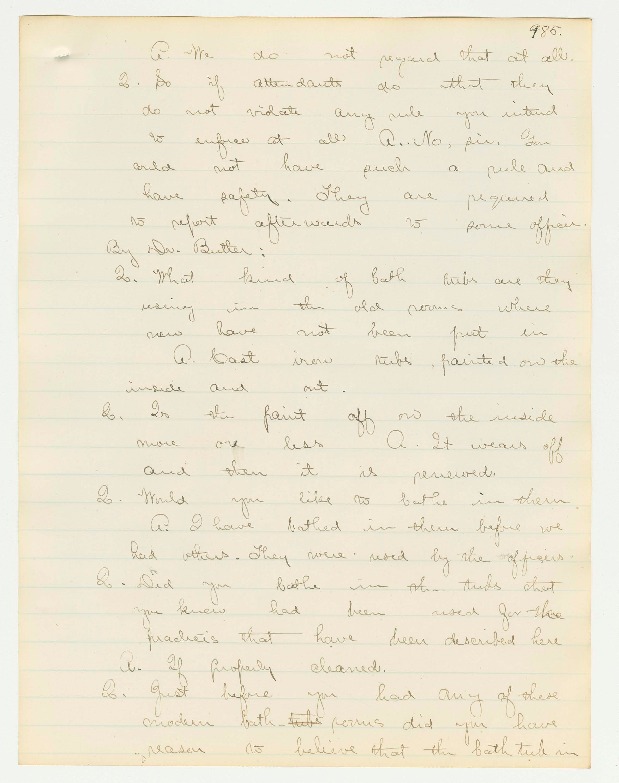 985.
A. We do not regard that at all.
Q. So if attendants do that they
do not violate any rule you intend
to enforce at all A. No, sir. You
could not have such a rule and
have safety. They are required
to report afterwards to some officer.
By Dr. Butler:
Q. What kind of bath tubs are they
using in the old rooms where
new have not been put in
A. Cast iron tubs, painted on the
inside and out.
Q. Is the paint off on the inside
more or less A. It wears off
and then it is renewed.
Q. Would you like to bathe in them
A. I have bathed in them before we
had others. They were used by the officers.
Q. Did you bathe in the tubs that
you knew had been used for the
practices that have been described here
A. If properly cleaned.
Q. Just before you had any of these
modern bath tubs rooms did you have
reason to believe that the bath tub in